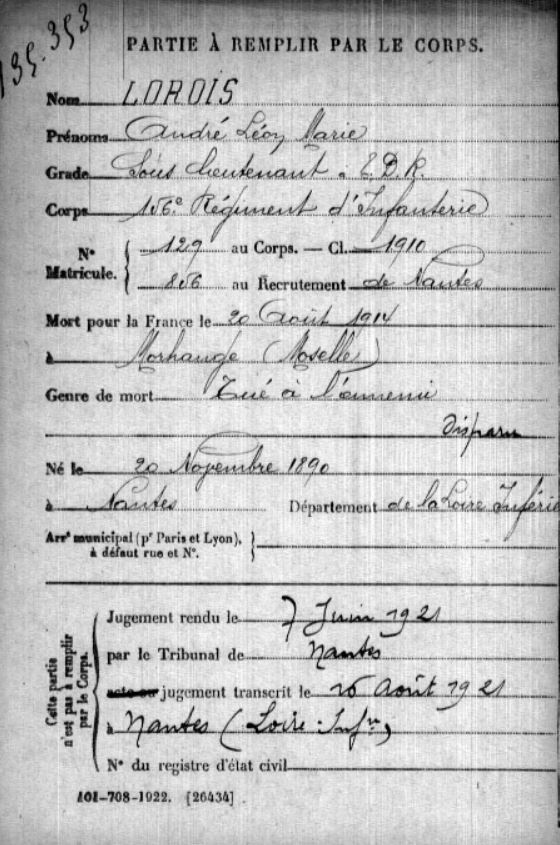 135.353
PARTIE À REMPLIR PAR LE CORPS.
Nom LOROIS
Prénoms André Léon Marie
Grade Sous lieutenant
Corps 156e Régiment d'Infanterie
N° Matricule. 129 au Corps. — Cl. 1910
856 au Recrutement de Nantes
Mort pour la France le 20 Août 1914
à Morhange (Moselle)
Genre de mort Tué à l'ennemi
disparu
Né le 20 Novembre 1890
à Nantes Département de la Loire Inférie
Arrt municipal (pr Paris et Lyon),
à défaut rue et N°.
Cette partie n'est pas à remplir par le Corps.
Jugement rendu le 7 Juin 1921
par le Tribunal de Nantes
acte ou jugement transcrit le 16 Août 1921
à Nantes (Loire-Infre)
N° du registre d'état civil
101-708-1922. [26434]